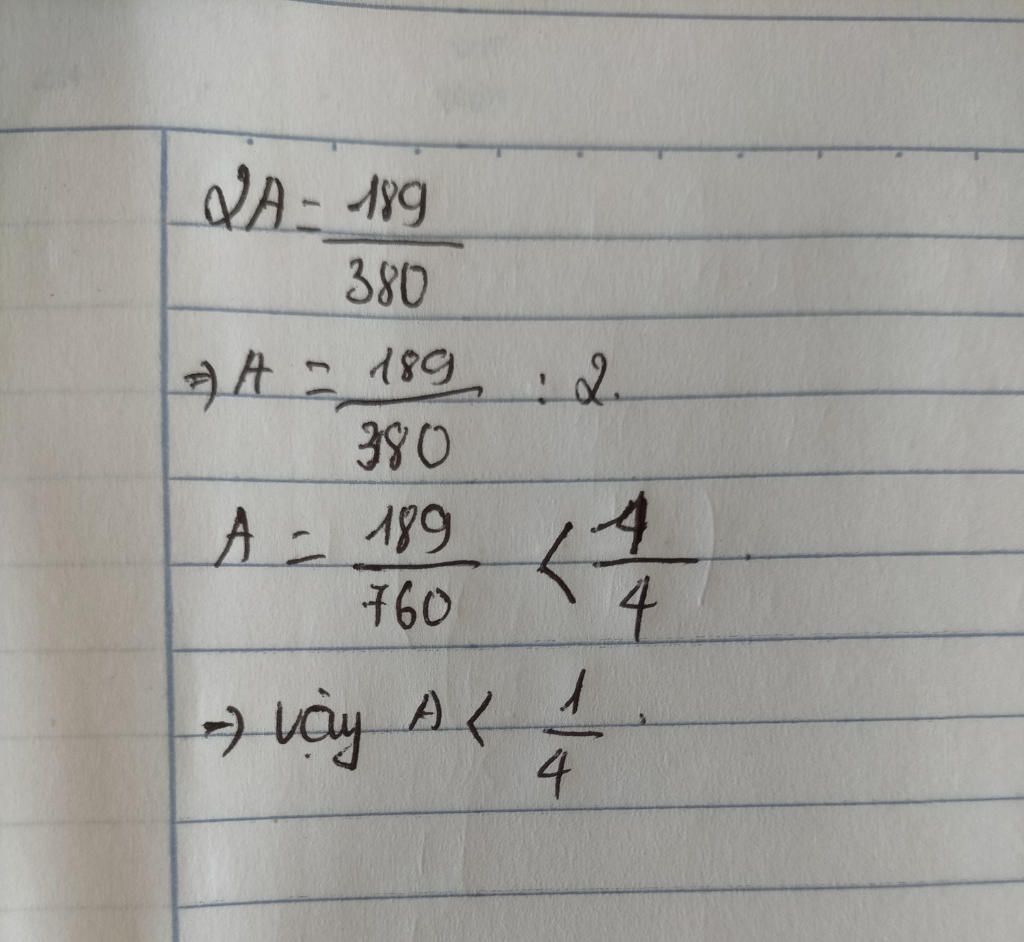 2A = 189/380
=> A = 189/380 : 2.
A = 189/760 < 1/4
=> vậy A < 1/4.